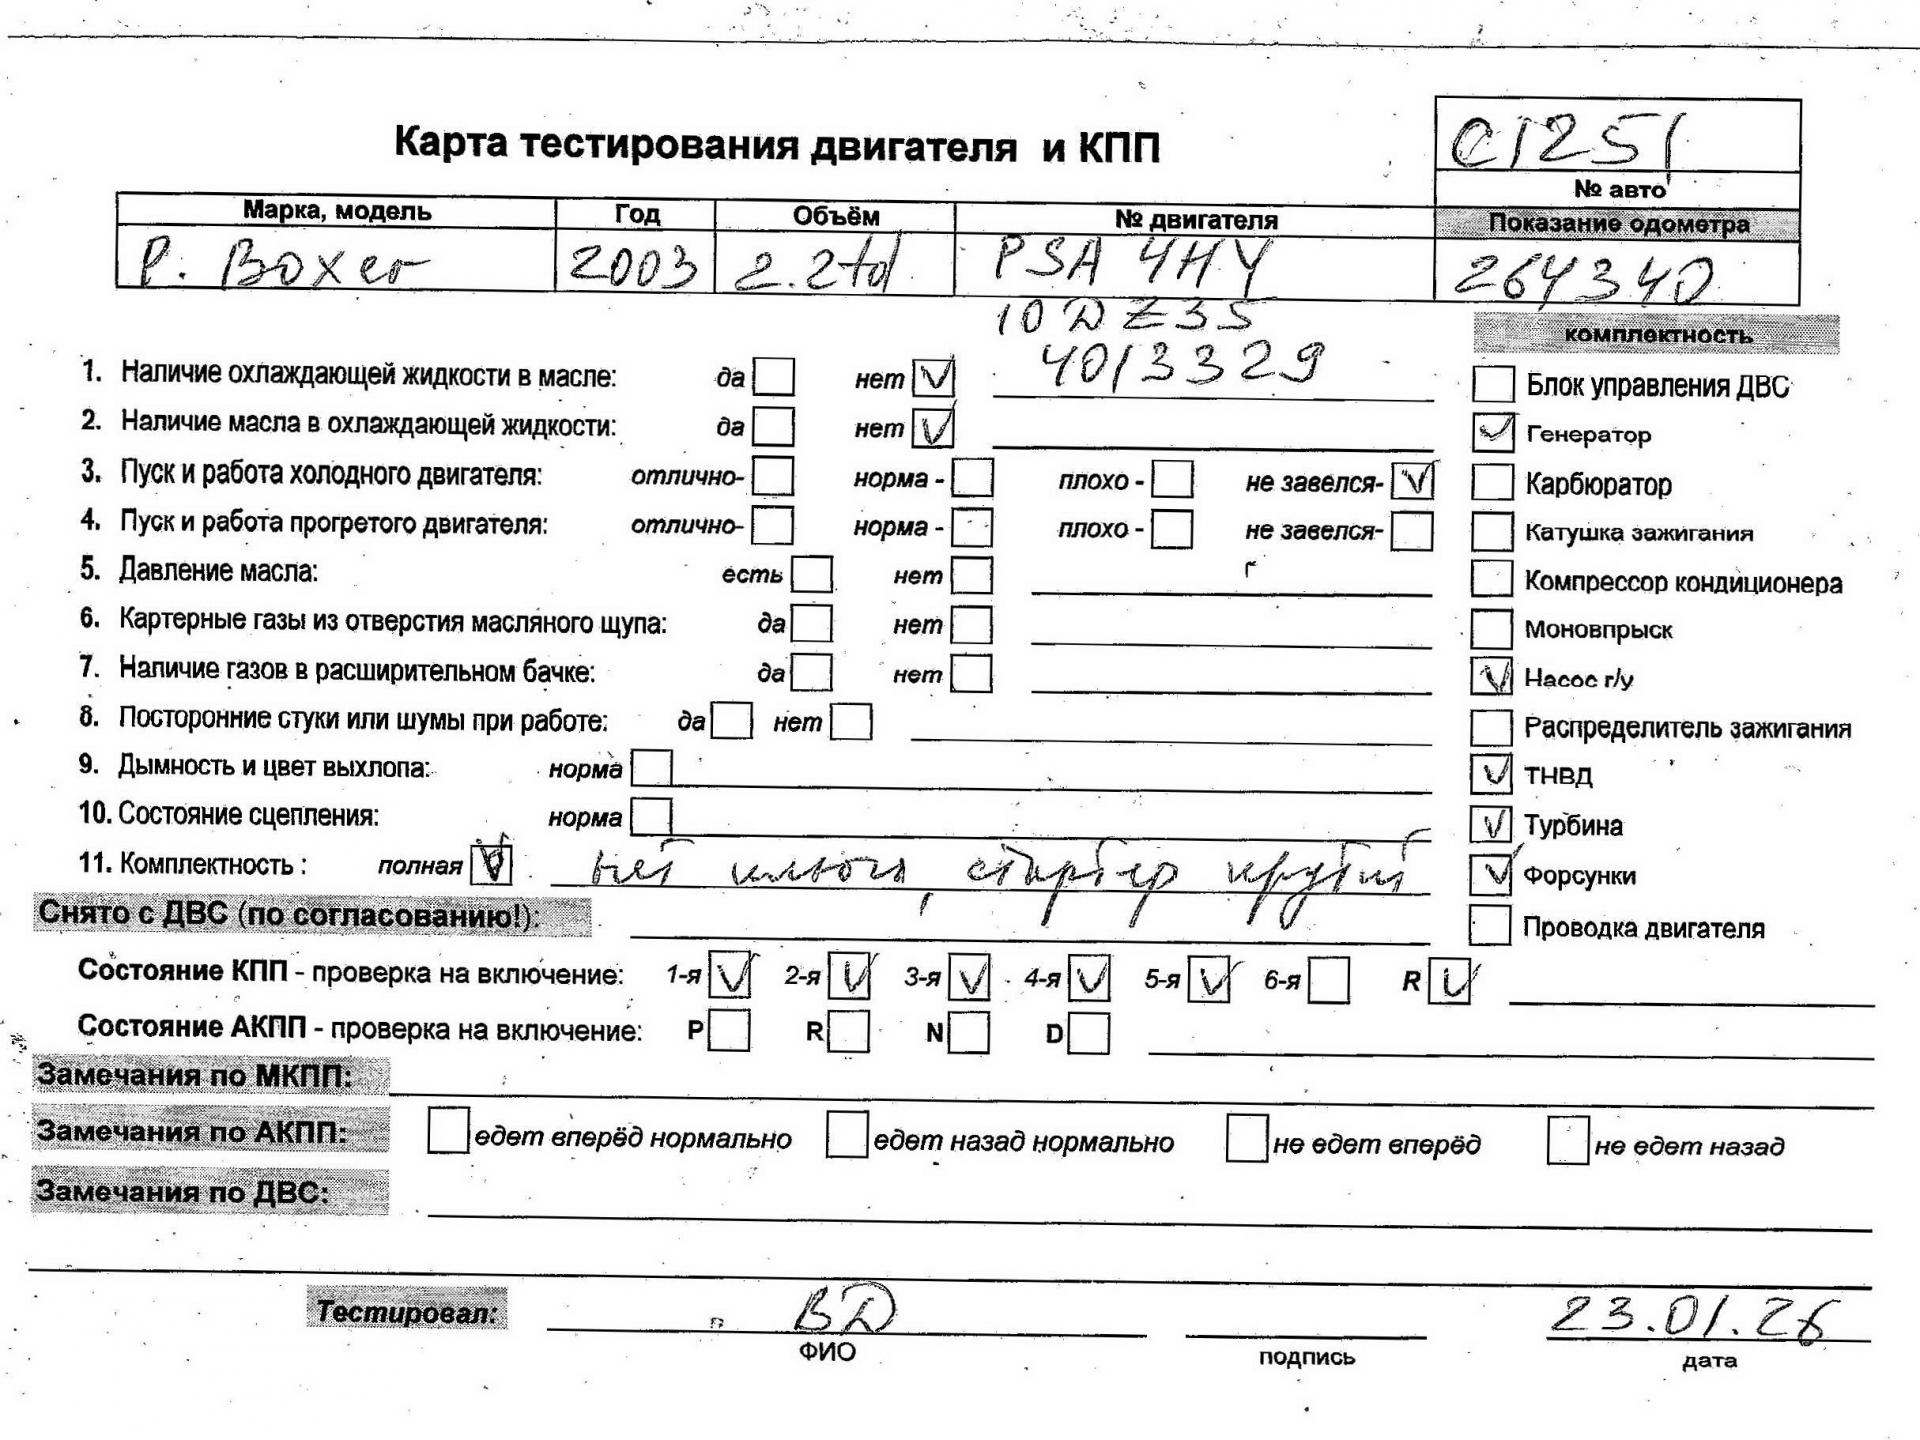 C1251
Карта тестирования двигателя и КПП
№ авто
Марка, модель Год Объём № двигателя Показание одометра
P. Boxer 2003 2.2td PSA 4HY 264340
10DZ35
4013329
комплектность
1. Наличие охлаждающей жидкости в масле: да нет
Блок управления ДВС
2. Наличие масла в охлаждающей жидкости: да нет
Генератор
3. Пуск и работа холодного двигателя: отлично- норма - плохо - не завелся-
Карбюратор
4. Пуск и работа прогретого двигателя: отлично- норма - плохо - не завелся-
Катушка зажигания
5. Давление масла: есть нет
Компрессор кондиционера
6. Картерные газы из отверстия масляного щупа: да нет
Моновпрыск
7. Наличие газов в расширительном бачке: да нет
Насос г/у
8. Посторонние стуки или шумы при работе: да нет
Распределитель зажигания
9. Дымность и цвет выхлопа: норма
ТНВД
10. Состояние сцепления: норма
Турбина
11. Комплектность : полная нет ключа, стартер крутит
Форсунки
Снято с ДВС (по согласованию!):
Проводка двигателя
Состояние КПП - проверка на включение: 1-я 2-я 3-я 4-я 5-я 6-я R
Состояние АКПП - проверка на включение: P R N D
Замечания по МКПП:
Замечания по АКПП: едет вперёд нормально едет назад нормально не едет вперёд не едет назад
Замечания по ДВС:
Тестировал: ВД 23.01.26
ФИО подпись дата